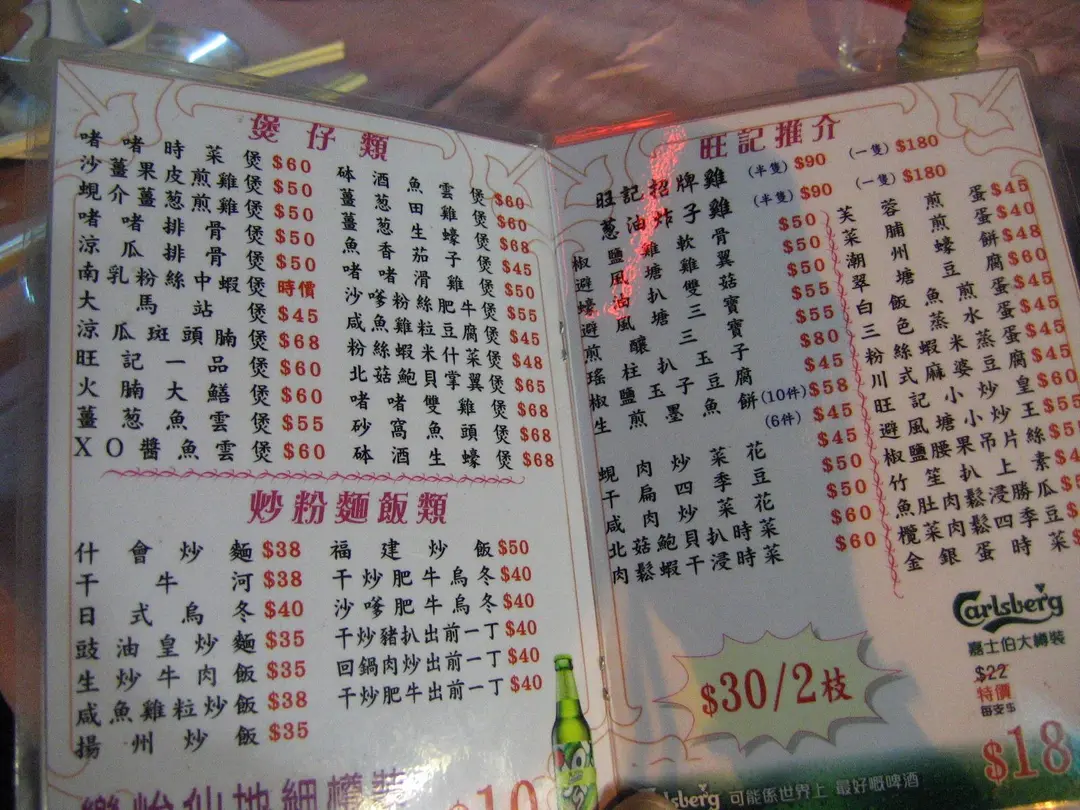 煲仔類
啫啫時菜煲 $60
沙薑果皮煎雞煲 $50
蜆介薑葱煎雞煲 $50
啫啫排骨煲 $50
涼瓜排骨煲 $50
南乳粉絲中蝦煲 時價
大馬站煲 $45
涼瓜斑頭腩煲 $68
旺記一品煲 $60
火腩大鱔煲 $60
薑葱魚雲煲 $55
XO醬魚雲煲 $60
砵酒魚雲煲 $60
薑葱田雞煲 $60
薑葱生蠔煲 $68
魚香茄子煲 $45
啫啫滑雞煲 $50
沙嗲粉絲肥牛煲 $55
咸魚雞粒豆腐煲 $45
粉絲蝦米什菜煲 $48
北菇鮑貝掌翼煲 $65
啫啫雙雞煲 $68
砂窩魚頭煲 $68
砵酒生蠔煲 $68
炒粉麵飯類
什會炒麵 $38
干牛河 $38
日式烏冬 $40
豉油皇炒麵 $35
生炒牛肉飯 $35
咸魚雞粒炒飯 $38
揚州炒飯 $35
福建炒飯 $50
干炒肥牛烏冬 $40
沙嗲肥牛烏冬 $40
干炒豬扒出前一丁 $40
回鍋肉炒出前一丁 $40
干炒肥牛出前一丁 $40
旺記推介
旺記招牌雞 (半隻) $90 (一隻) $180
葱油炸子雞 (半隻) $90 (一隻) $180
椒鹽雞軟骨 $50
避風塘雞翼 $50
蠔油扒雙菇 $50
避風塘三寶 $55
煎釀三寶 $55
瑤柱扒玉子 $80
椒鹽玉子豆腐 $45
生煎墨魚餅 (10件) $58
(6件) $45
蜆肉炒菜花 $45
干扁四季豆 $50
咸肉炒菜花 $50
北菇鮑貝扒時菜 $60
肉鬆蝦干浸時菜 $60
芙蓉煎蛋 $45
菜脯煎蛋 $40
潮州蠔餅 $48
翠塘豆腐 $60
白飯魚煎蛋 $45
三色蒸水蛋 $45
粉絲蝦米蒸蛋 $45
川式麻婆豆腐 $45
旺記小炒皇 $60
避風塘小炒王 $55
椒鹽腰果吊片絲
竹笙扒上素
魚肚肉鬆浸勝瓜
欖菜肉鬆四季豆
金銀蛋時菜
$30/2枝
Carlsberg
嘉士伯大樽裝
$22
特價
每支
$18
Carlsberg 可能係世界上 最好嘅啤酒